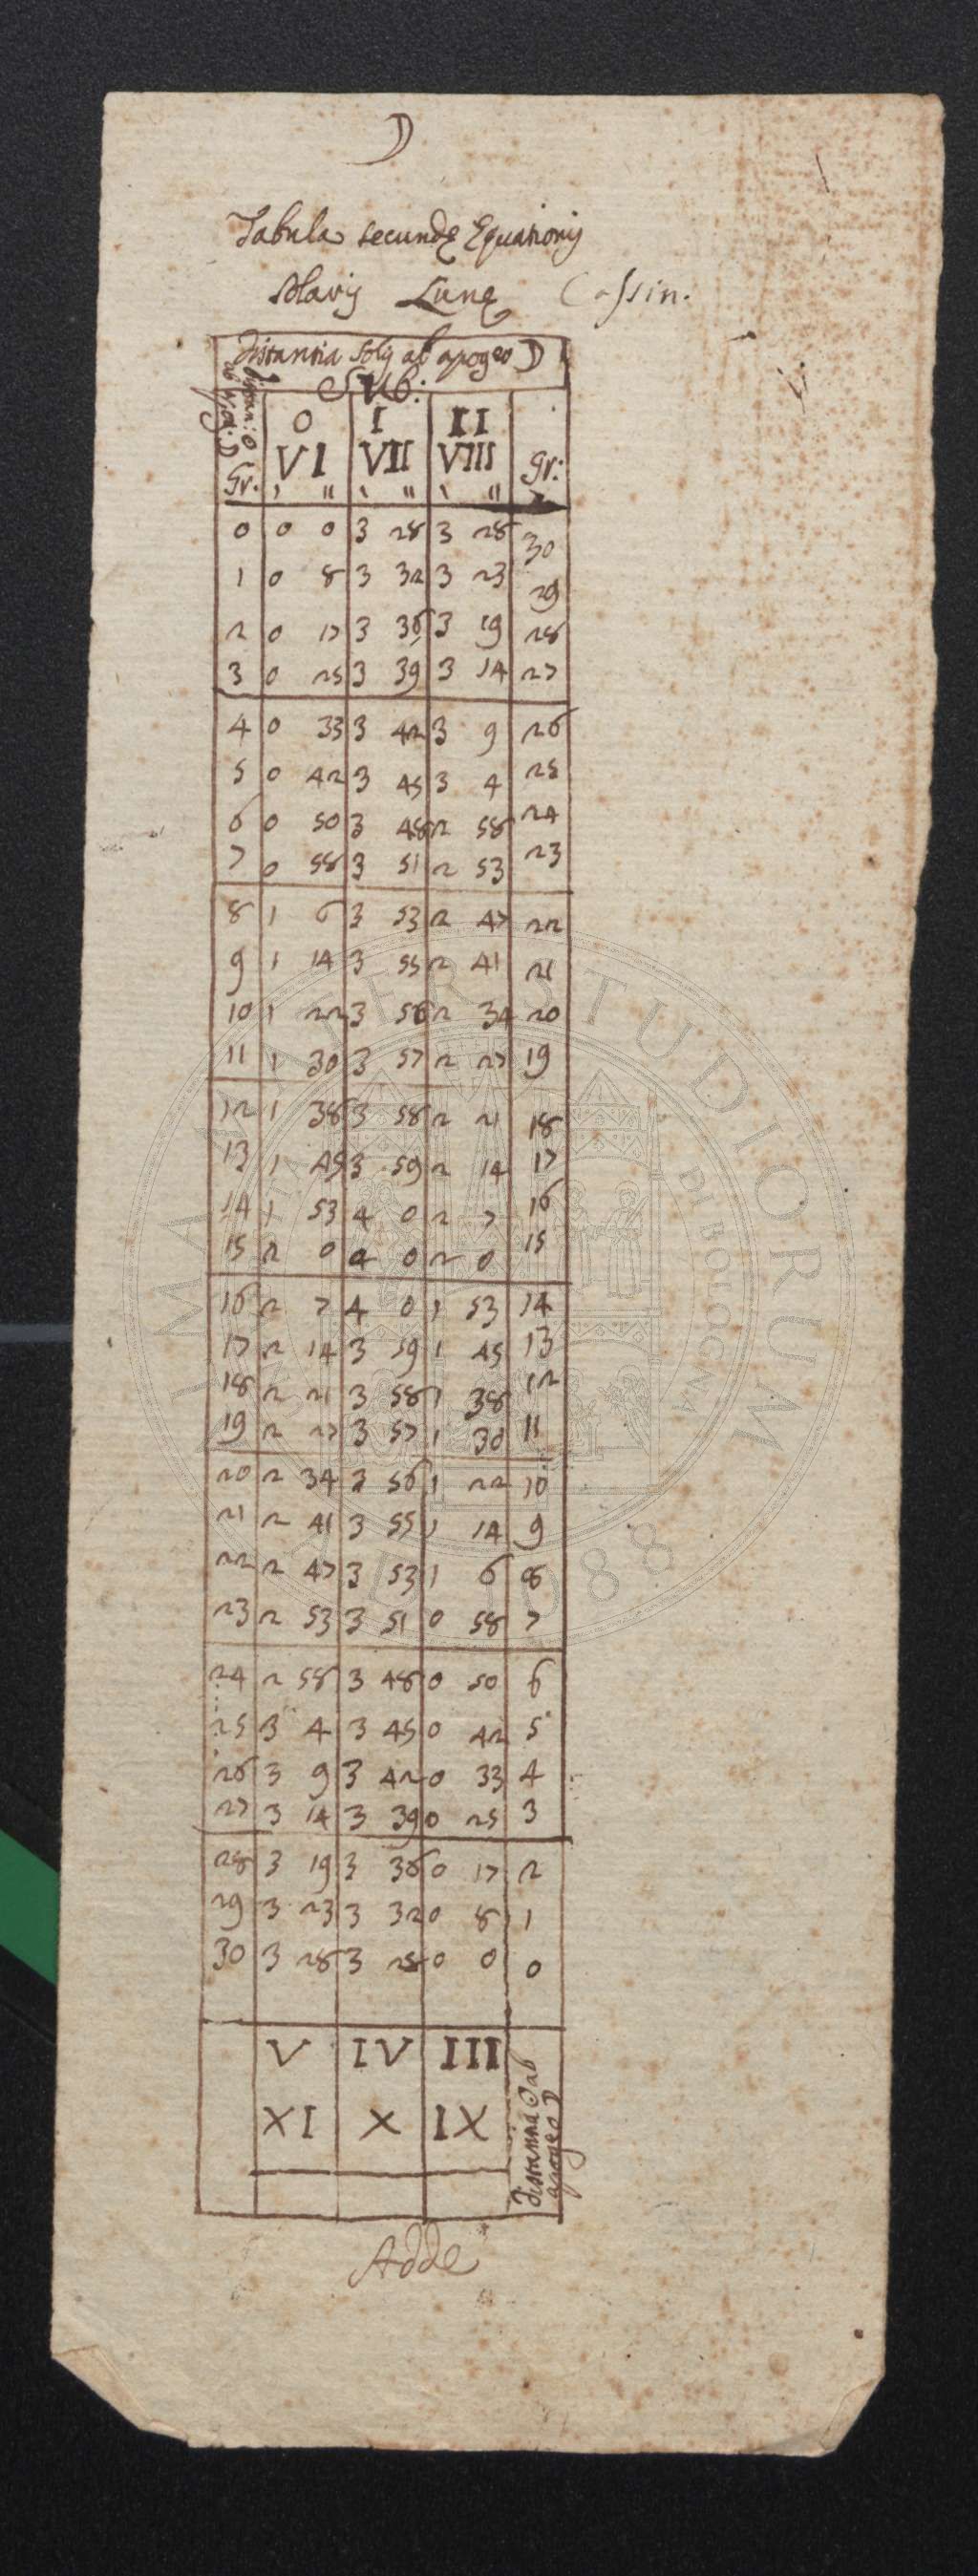 ☽
Tabula secundę Equationis
solaris Lunę Cassin.
Distantia Solis ab apogeo ☽
Sub:
Distan: ☉ ab apog. ☽
0 I II
VI VII VIII gr:
Gr. ' " ' " ' "
0 0 0 3 28 3 28 30
1 0 8 3 32 3 23 29
2 0 17 3 36 3 19 28
3 0 25 3 39 3 14 27
4 0 33 3 42 3 9 26
5 0 42 3 45 3 4 25
6 0 50 3 48 2 58 24
7 0 58 3 51 2 53 23
8 1 6 3 53 2 47 22
9 1 14 3 55 2 41 21
10 1 22 3 56 2 34 20
11 1 30 3 57 2 27 19
12 1 38 3 58 2 21 18
13 1 45 3 59 2 14 17
14 1 53 4 0 2 7 16
15 2 0 4 0 2 0 15
16 2 7 4 0 1 53 14
17 2 14 3 59 1 45 13
18 2 21 3 58 1 38 12
19 2 27 3 57 1 30 11
20 2 34 3 56 1 22 10
21 2 41 3 55 1 14 9
22 2 47 3 53 1 6 8
23 2 53 3 51 0 58 7
24 2 58 3 48 0 50 6
25 3 4 3 45 0 42 5
26 3 9 3 42 0 33 4
27 3 14 3 39 0 25 3
28 3 19 3 36 0 17 2
29 3 23 3 32 0 8 1
30 3 28 3 28 0 0 0
V IV III
XI X IX
Distantia ☉ ab
apogeo ☽
Adde
ALMA MATER STUDIORUM
UNIVERSITÀ DI BOLOGNA
A.D. 1088